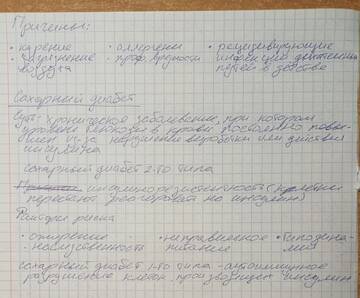 Причены:
• курение • аллергены • рецидивирующие
• загрязнение • проф. вредности инфекции дыхательных
воздуха путей в детстве
Сахарный диабет
Суть: хроническое заболевание, при котором
уровень глюкозы в крови постоянно повы-
шен из-за нарушение выработки или действия
инсулина
сахарный диабет 2-го типа
инсулинорезистентность (клетки
перестают реагировать на инсулин)
Факторы риска
• ожирение • неправильное • Гиподина-
• наследственность питание мия
сахарный диабет 1-го типа - аутоиммунное
разрушение клеток, производящих инсулин